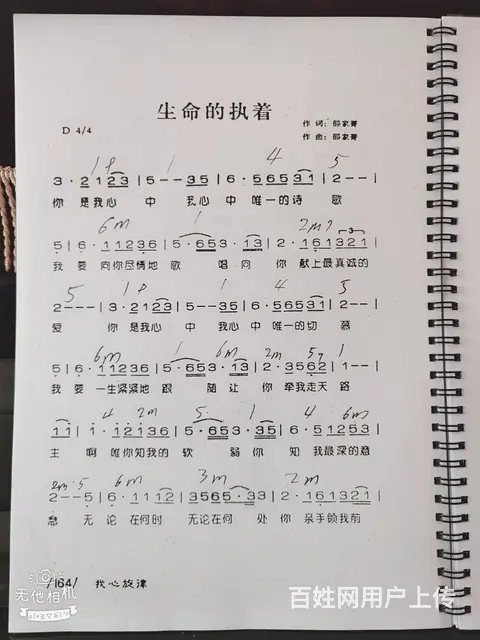 生命的执着
D 4/4
作 词：邵家菁
作 曲：邵家菁
1 1 4 5
3 · 2 1 2 3 | 5 - - 3 5 | 6 · 5 6 5 3 1 | 2 - - |
你 是我心 中 我心 中 唯一的诗 歌
6m 1 2m7
5 | 6 · 1 1 2 3 6 | 5 · 6 5 3 · 1 3 | 2 · 1 6 1 3 2 1 |
我 要 向你尽情地 歌 唱 向 你 献上最真诚的
5 1 1 4 5
2 - - - | 3 · 2 1 2 3 | 5 - - 3 5 | 6 · 5 6 5 3 1 | 2 - - |
爱 你 是我心 中 我心 中 唯一的切 慕
6m 1 6m 2m 5 1
5 | 6 · 1 1 2 3 6 | 5 · 6 5 3 · 1 3 | 2 · 3 5 6 2 | 1 - - |
我 要 一生紧紧地 跟 随 让 你 牵我走天 路
4 2m 5 1 4 6m
主 啊 唯你知我的 软 弱 你 知 我最深的意
2m 5 6m 3m 2m
2 - - 5 | 6 · 1 1 1 2 | 3 5 6 5 · 3 3 | 2 · 1 6 1 3 2 1 |
念 无 论 在何时 无论在何 处 你 亲手领我前
/164/ 我心旋律
无他相机
百姓网用户上传